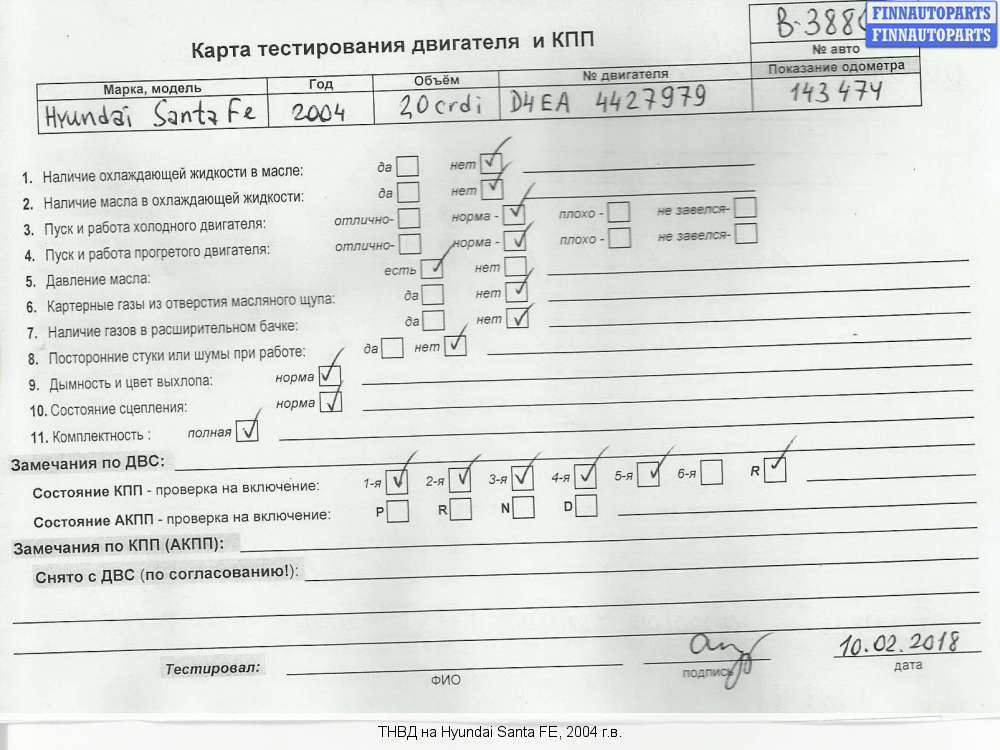 В-388
FINNAUTOPARTS
FINNAUTOPARTS
Карта тестирования двигателя и КПП
№ авто
Марка, модель Год Объём № двигателя Показание одометра
Hyundai Santa Fe 2004 2.0 crdi D4EA 4427979 143 474
1. Наличие охлаждающей жидкости в масле: да нет
2. Наличие масла в охлаждающей жидкости: да нет
3. Пуск и работа холодного двигателя: отлично- норма - плохо - не завелся-
4. Пуск и работа прогретого двигателя: отлично- норма - плохо - не завелся-
5. Давление масла: есть нет
6. Картерные газы из отверстия масляного щупа: да нет
7. Наличие газов в расширительном бачке: да нет
8. Посторонние стуки или шумы при работе: да нет
9. Дымность и цвет выхлопа: норма
10. Состояние сцепления: норма
11. Комплектность : полная
Замечания по ДВС:
Состояние КПП - проверка на включение: 1-я 2-я 3-я 4-я 5-я 6-я R
Состояние АКПП - проверка на включение: P R N D
Замечания по КПП (АКПП):
Снято с ДВС (по согласованию!):
10.02.2018
Тестировал: ФИО подпись дата
ТНВД на Hyundai Santa FE, 2004 г.в.